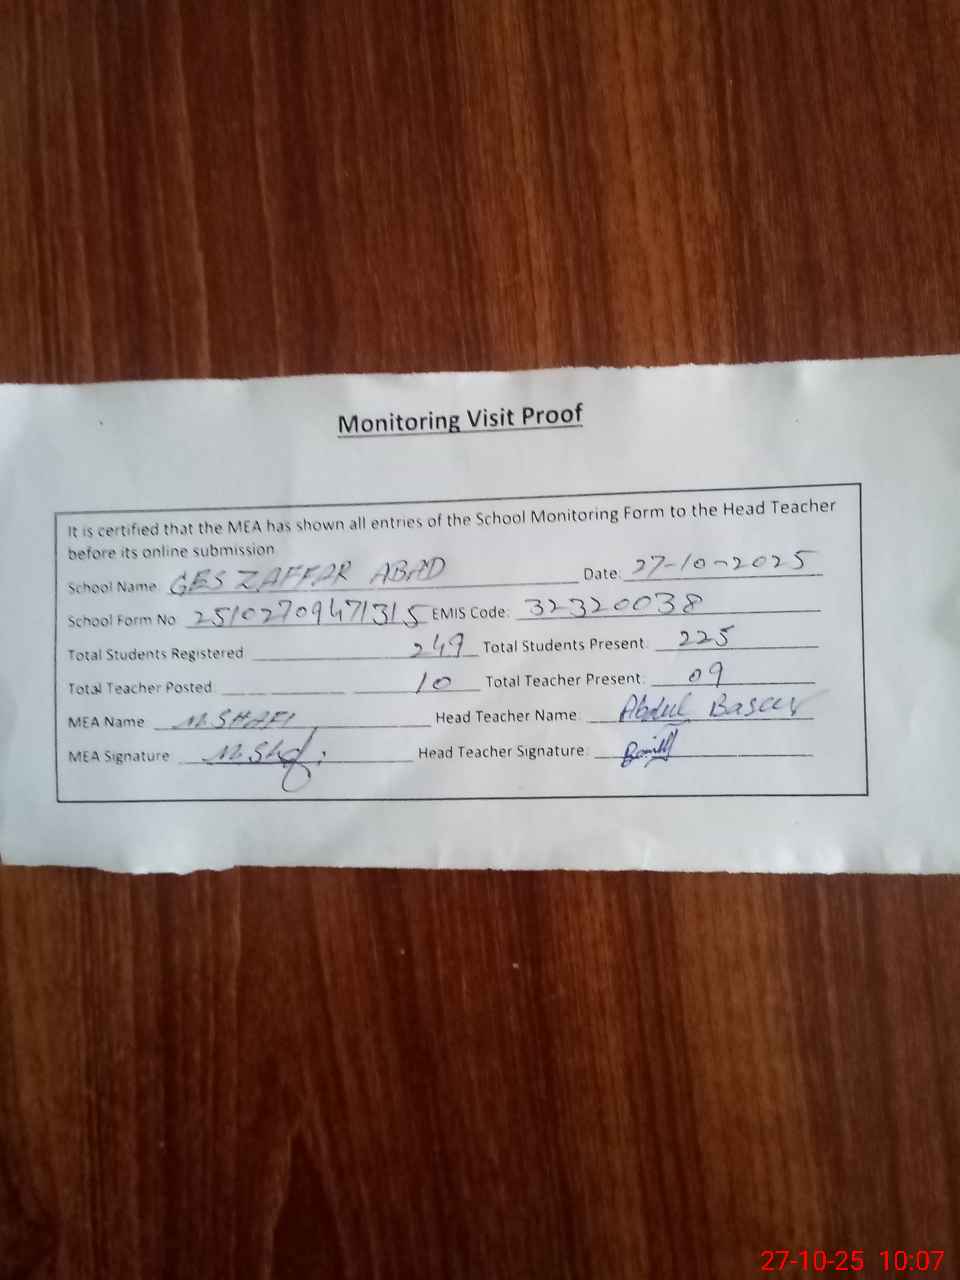 Monitoring Visit Proof
It is certified that the MEA has shown all entries of the School Monitoring Form to the Head Teacher
before its online submission
School Name GES ZAFFAR ABAD Date: 27-10-2025
School Form No 25102709471315 EMIS Code: 32320038
Total Students Registered 249 Total Students Present: 225
Total Teacher Posted: 10 Total Teacher Present: 09
MEA Name M.SHAFI Head Teacher Name: Abdul
MEA Signature Head Teacher Signature:
27-10-25 10:07